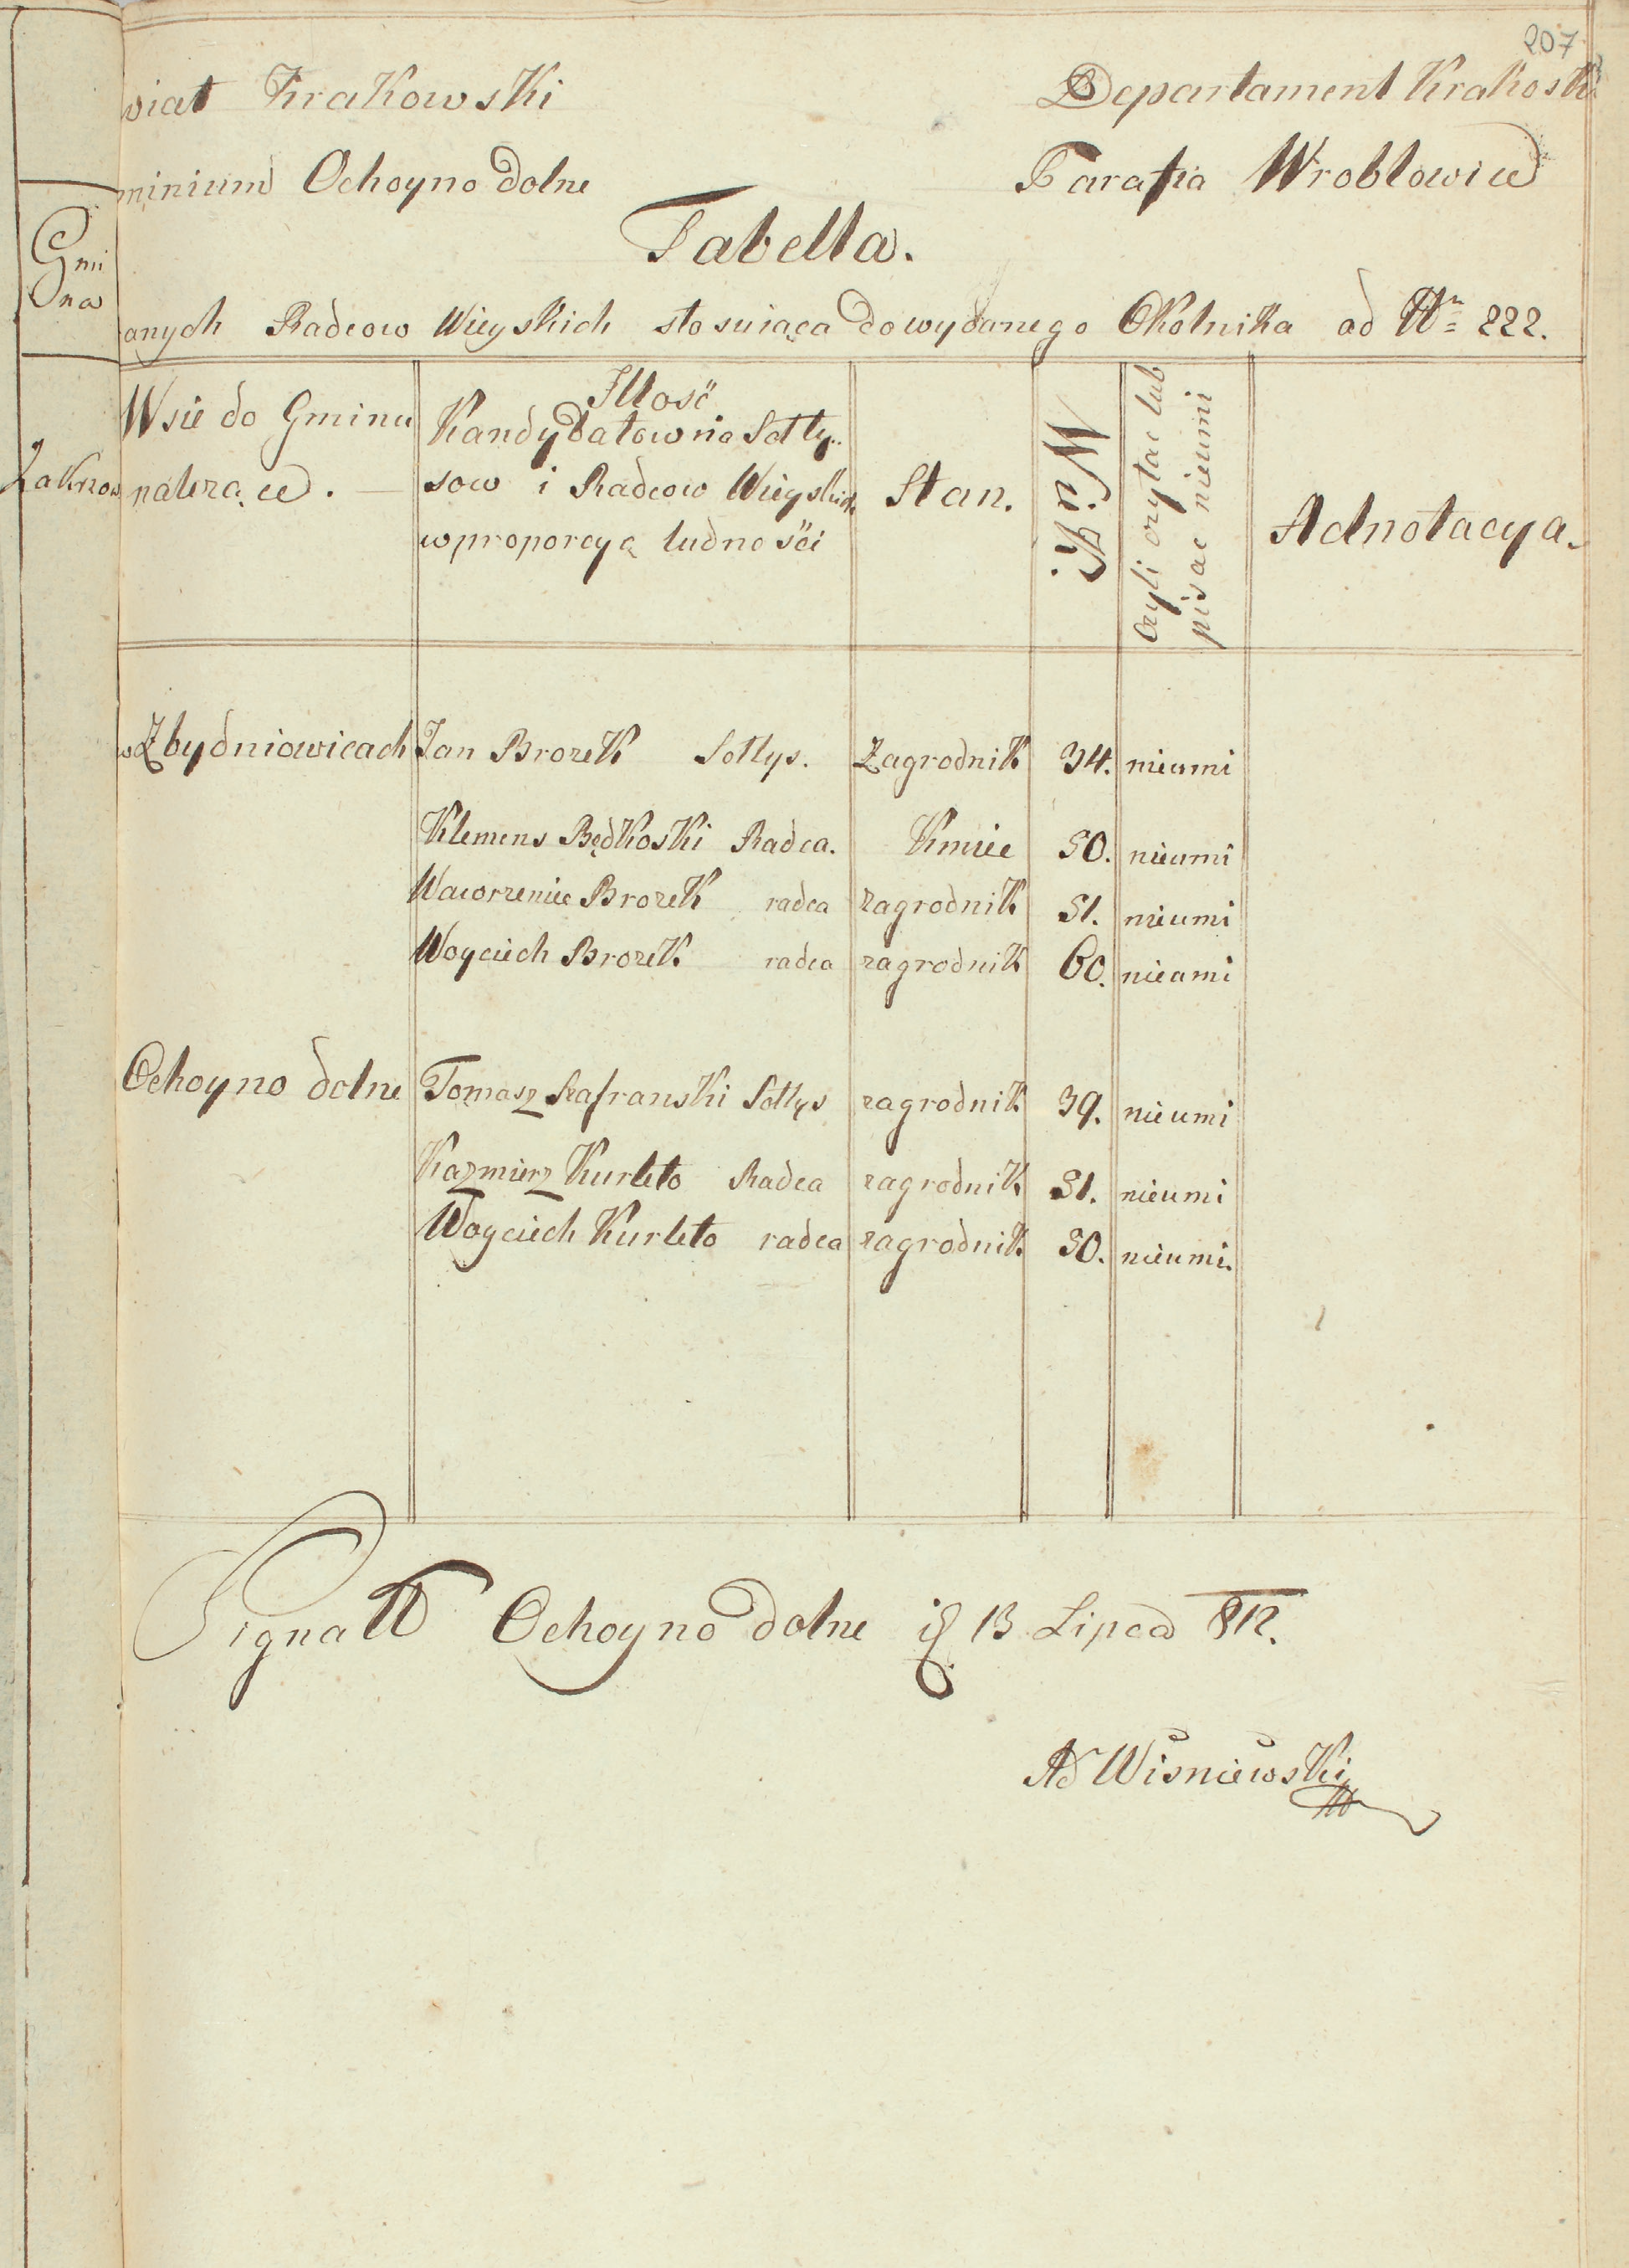 207
wiat Krakowski Departament Krakoski
minium Ochoyno dolne Parafia Wroblowice
Tabella.
anych Radcow Wieyskich stosuiąca do wydanego Okolnika ad Nr 222.
Gmi
na
Wsie do Gminu
należące.
Illość
Kandydatow na Sołty-
sow i Radcow Wieyskich
w proporcyą ludności
Stan.
Wiek
Czyli czytac lub
pisac nieumii
Adnotacya.
w Zbydniowicach Jan Brozek Sołtys. Zagrodnik 34. nieumi
Klemens Będkoski Radca. Kmiec 50. nieumi
Wawrzeniec Brozek radca zagrodnik 51. nieumi
Woyciech Brozek radca zagrodnik 60. nieumi
Ochoyno dolne Tomasz Szafranski Sołtys zagrodnik 39. nieumi
Kazmierz Kurleto Radca zagrodnik 51. nieumi
Woyciech Kurleto radca zagrodnik 50. nieumi.
Signatt Ochoyno dolne 13 Lipca 812.
Ad Wiśniewski